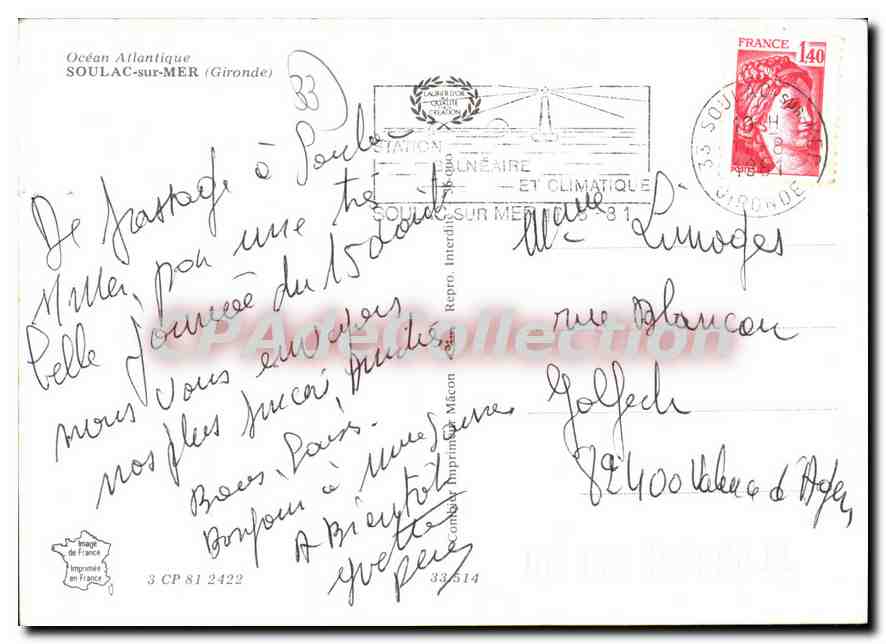 Océan Atlantique
SOULAC-sur-MER (Gironde)
33
De passage à Soulac
s/Mer, pour une très
belle journée du 15 août
nous vous envoyons
nos plus sincères Amitiés
Bons baisers
Bonjour à Mme
A Bientôt
Yvette
LAURIER D'OR
QUALITÉ
CRÉATION
STATION
BALNÉAIRE
ET CLIMATIQUE
SOULAC SUR MER
FRANCE
1,40
33 SOULAC SUR MER
GIRONDE
1981
Mme Limoges
rue Blancou
Golfech
82400 Valence d'Agen
Combier Imprimeur Mâcon Repro. Interdite
CPAdeCollection
Image
de France
Imprimée
en France
3 CP 81 2422
33.514